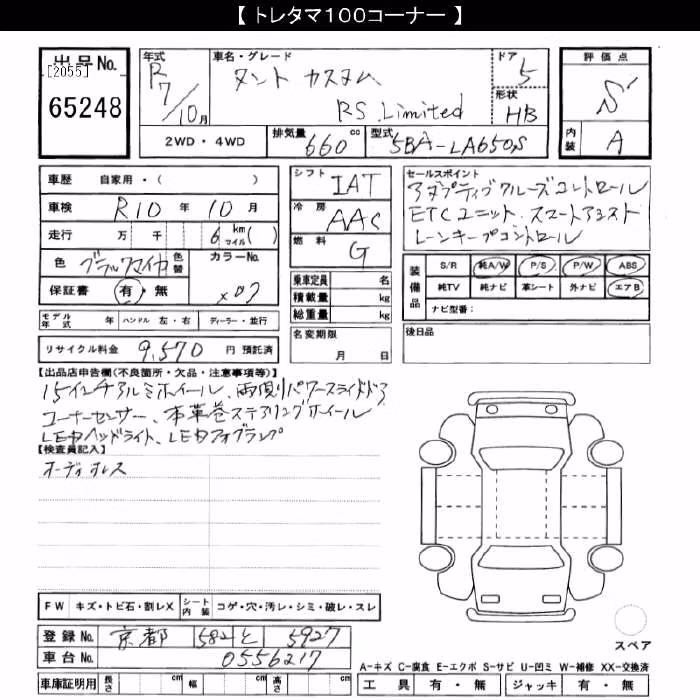 【 トレタマ100コーナー 】
出品No. [2055] 65248
年式 R7/10月
車名・グレード タント カスタム RS Limited
ドア 5
形状 HB
評価点 S
内装 A
2WD・4WD
排気量 660 cc
型式 5BA-LA650S
車歴 自家用・( )
車検 R10 年 10 月
走行 万 千 6 km マイル( )
色 ブラックマイカ 色替 カラーNo. X07
保証書 有・無
モデル年式 年 ハンドル 左・右 ディーラー・並行
リサイクル料金 9,570 円 預託済
シフト IAT
冷房 AAC
燃料 G
乗車定員 名
積載量 kg
総重量 kg
名変期限 月 日
セールスポイント
アダプティブクルーズコントロール
ETCユニット.スマートアシスト
レーンキープコントロール
装備品 S/R 純A/W P/S P/W ABS
純TV 純ナビ 革シート 外ナビ エアB
ナビ型番:
後日品
【出品店申告欄(不良箇所・欠品・注意事項等)】
15インチアルミホイール、両側パワースライドドア
コーナーセンサー、本革巻ステアリングホイール
LEDヘッドライト、LEDフォグランプ
【検査員記入】
オーディオレス
FW キズ・トビ石・割レX シート内装 コゲ・穴・汚レ・シミ・破レ・スレ
登録No. 京都 582 と 5927
車台No. 0556217
車庫証明用 長さ cm 幅 cm 高さ cm
スペア
A-キズ C-腐食 E-エクボ S-サビ U-凹ミ W-補修 XX-交換済
工具 有・無 ジャッキ 有・無